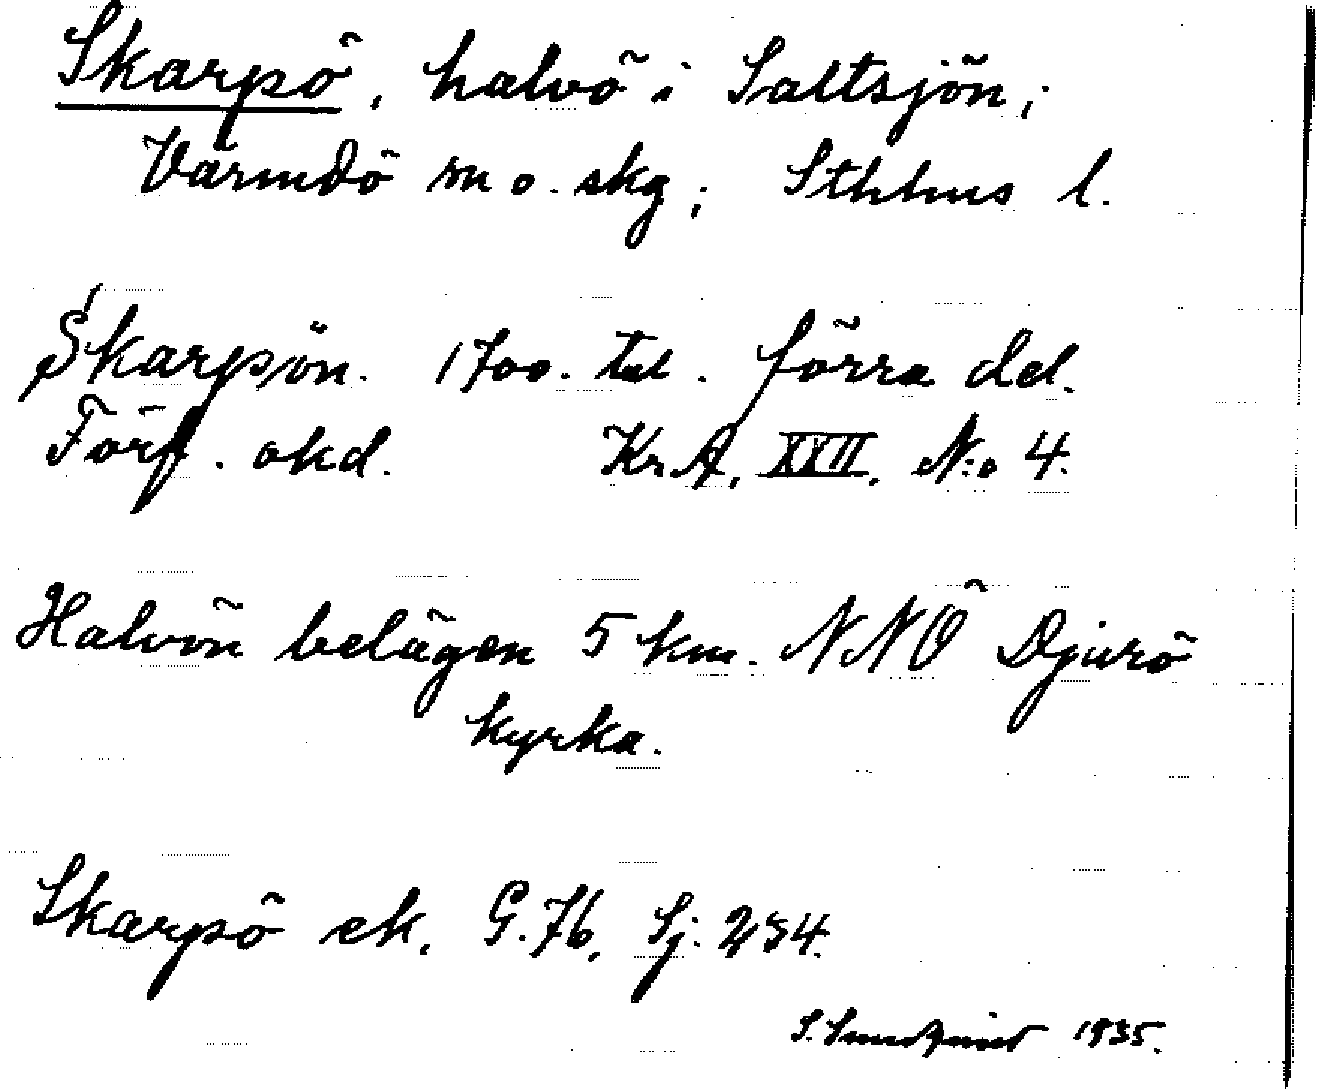 Skarpö, halvö i Saltsjön,
Värmdö sn o. skg; Sthlms l.
Skarpön. 1700-tal. förra del.
Förf. okd. Kr.A. XXII. N:o 4.
Halvön belägen 5 km. NNÖ Djurö
kyrka.
Skarpö ek. G.76. Sj. 234.
S. 1935.